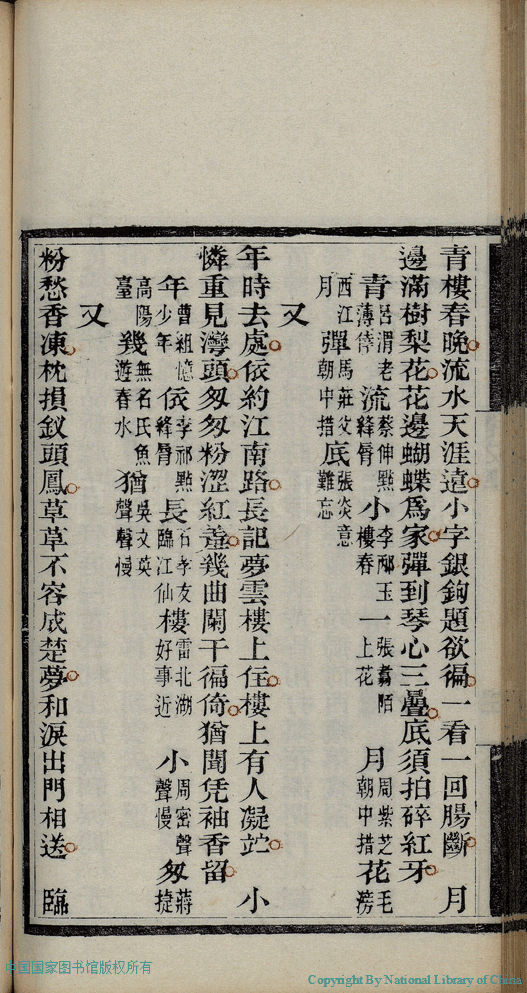 青樓春晚流水天涯遠小字銀鉤題欲徧一看一回腸斷 月
邊滿樹梨花花邊蝴蝶爲家彈到琴心三疊底須拍碎紅牙
青呂渭老薄倖 流蔡伸點絳脣 小李邴玉樓春 一張翥陌上花 月周紫芝朝中措 花毛滂
西江月 彈馬莊父朝中措 底張炎意難忘
又
年時去處依約江南路長記夢雲樓上住樓上有人凝竚 小
憐重見灣頭匆匆粉澀紅羞幾曲闌干徧倚猶聞凭袖香留
年曹組憶少年 依李祁點絳脣 長石孝友臨江仙 樓雷北湖好事近 小周密聲聲慢 匆蔣捷
高陽臺 幾無名氏魚遊春水 猶吳文英聲聲慢
又
粉愁香凍枕損釵頭鳳草草不容成楚夢和淚出門相送 臨
中国国家图书馆版权所有
Copyright By National Library of China